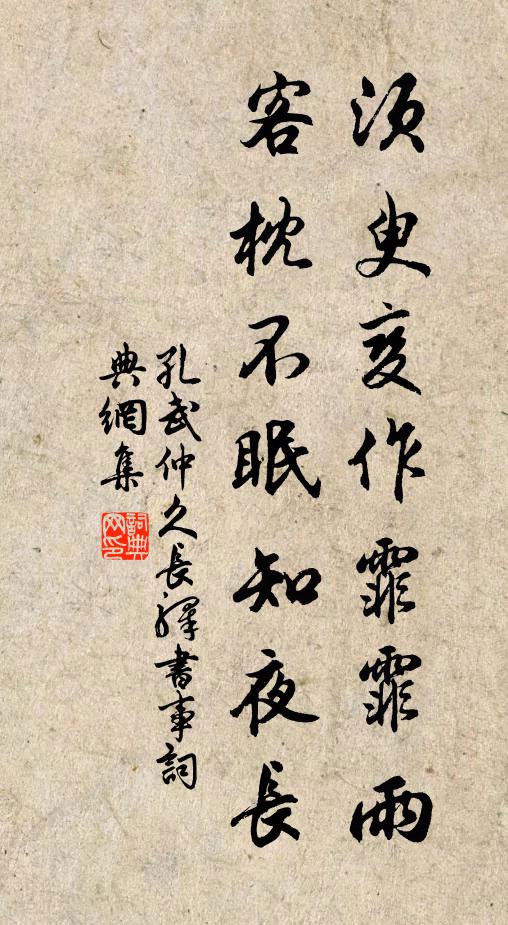 須臾变作霏霏雨
客枕不眠知夜長
孔武仲久長驛書事詞
典網集
詞典网印